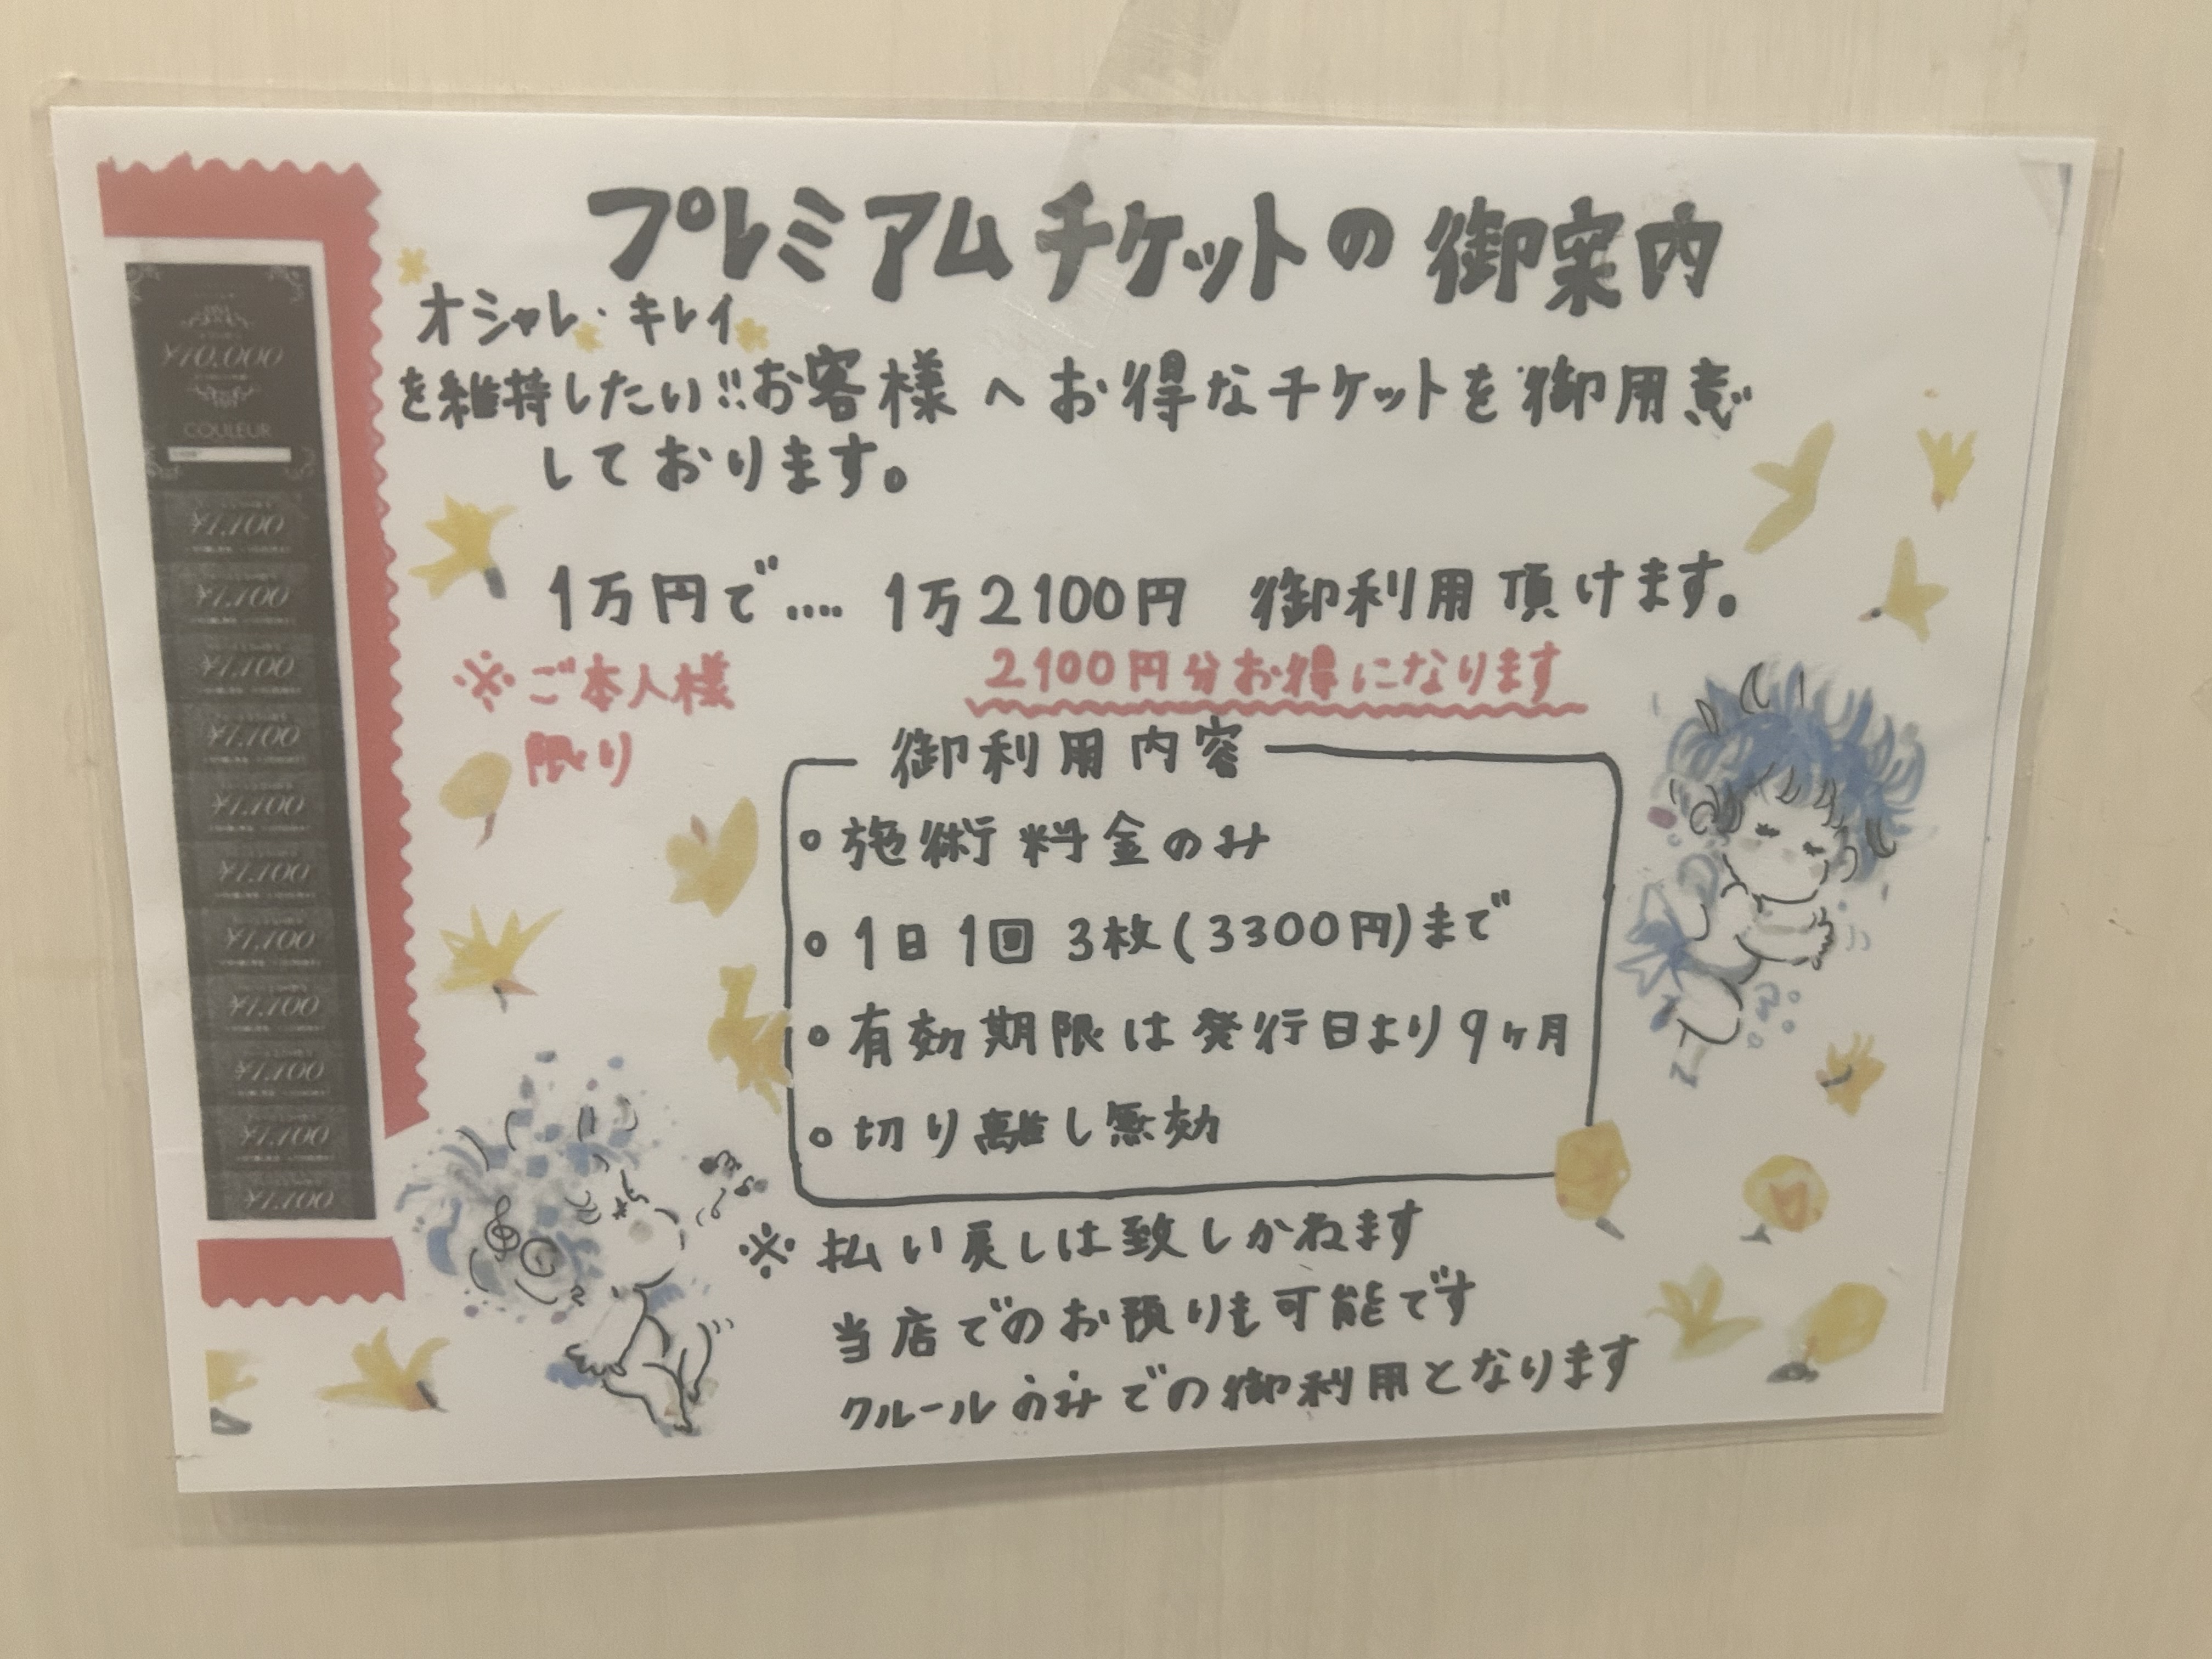 プレミアムチケットの御案内
オシャレ・キレイ
を維持したい!!お客様へお得なチケットを御用意
しております。
1万円で‥‥ 1万2100円 御利用頂けます。
※ご本人様
限り
2100円分お得になります
御利用内容
○ 施術料金のみ
○ 1日1回 3枚(3300円)まで
○ 有効期限は発行日より9ヶ月
○ 切り離し無効
※ 払い戻しは致しかねます
当店でのお預りも可能です
クルールのみでの御利用となります
¥10,000
COULEUR
¥1,100
¥1,100
¥1,100
¥1,100
¥1,100
¥1,100
¥1,100
¥1,100
¥1,100
¥1,100
¥1,100